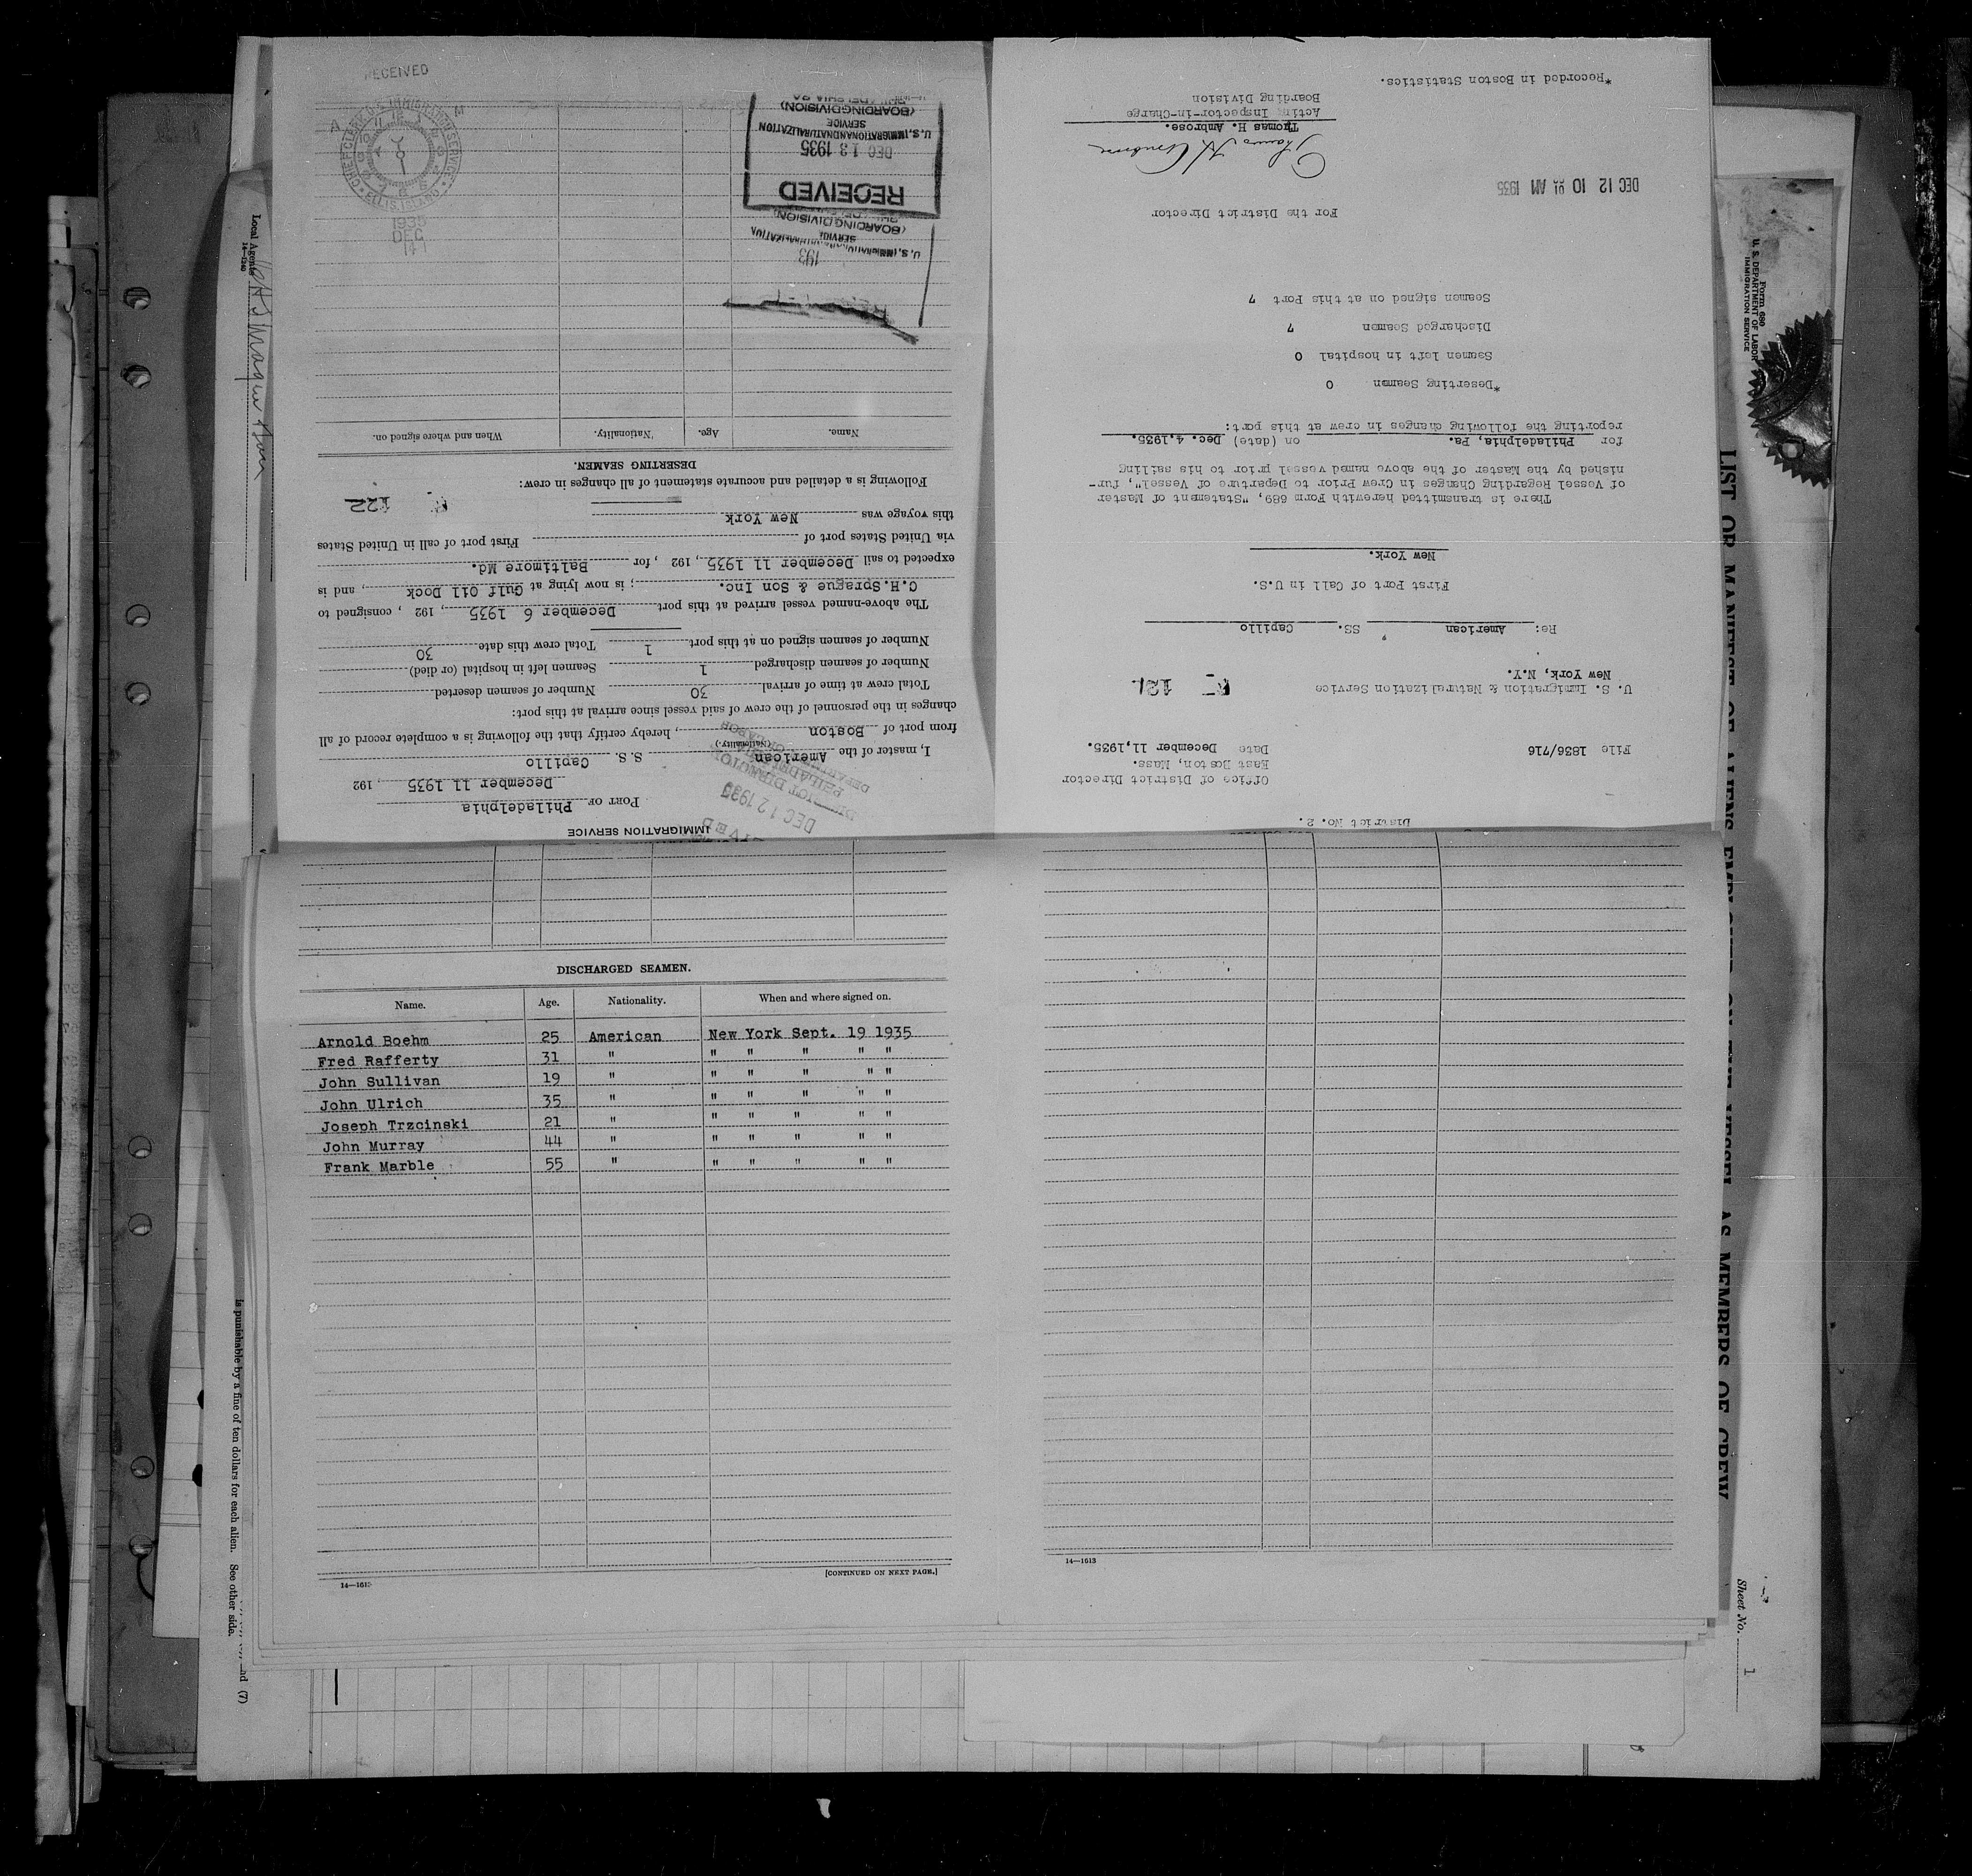 District No. 2.
Office of District Director
East Boston, Mass.
File 1836/716 Date December 11,1935.
U. S. Immigration & Naturalization Service
New York, N.Y.
121
Re: American SS. Capillo
First Port of Call in U.S.
New York.
There is transmitted herewith Form 689, "Statement of Master
of Vessel Regarding Changes in Crew Prior to Departure of Vessel", fur-
nished by the Master of the above named vessel prior to his sailing
for Philadelphia, Pa. on (date) Dec. 4,1935.
reporting the following changes in crew at this port:
*Deserting Seamen 0
Seamen left in hospital 0
Discharged Seamen 7
Seamen signed on at this Port 7
For the District Director
DEC 12 10 01 AM 1935
Thomas H. Ambrose
Thomas H. Ambrose.
Acting Inspector-in-Charge
Boarding Division
*Recorded in Boston Statistics.
IMMIGRATION SERVICE
PORT OF Philadelphia
December 11 1935, 192
DEC 12 1935
I, master of the American S.S. Capillo
(Nationality.)
from port of Boston, hereby certify that the following is a complete record of all
changes in the personnel of the crew of said vessel since arrival at this port:
Total crew at time of arrival 30 Number of seamen deserted
Number of seamen discharged 1 Seamen left in hospital (or died)
Number of seamen signed on at this port 1 Total crew this date 30
The above-named vessel arrived at this port December 6 1935, 192 , consigned to
C.H.Sprague & Son Inc. ; is now lying at Gulf Oil Dock, and is
expected to sail December 11 1935, 192 , for Baltimore Md.
via United States port of First port of call in United States
this voyage was New York
122
Following is a detailed and accurate statement of all changes in crew:
DESERTING SEAMEN.
Name. Age. Nationality. When and where signed on.
193
U. S. IMMIGRATION
SERVICE
(BOARDING DIVISION)
RECEIVED
DEC 13 1935
U. S. IMMIGRATION AND NATURALIZATION
SERVICE
(BOARDING DIVISION)
PHILADELPHIA PA
RECEIVED
CHIEF CLERK U.S. IMMIGRATION SERVICE
ELLIS ISLAND
A M
1935
DEC
DISCHARGED SEAMEN.
Name. Age. Nationality. When and where signed on.
Arnold Boehm 25 American New York Sept. 19 1935
Fred Rafferty 31 " " " " " "
John Sullivan 19 " " " " " "
John Ulrich 35 " " " " " "
Joseph Trzcinski 21 " " " " " "
John Murray 44 " " " " " "
Frank Marble 55 " " " " " "
14—1613
[CONTINUED ON NEXT PAGE.]
14—1613
Local Agents
14—1240
is punishable by a fine of ten dollars for each alien. See other side.
(7)
Form 689
U. S. DEPARTMENT OF LABOR
IMMIGRATION SERVICE
LIST OR MANIFEST OF ALIENS EMPLOYED ON THE VESSEL AS MEMBERS OF CREW
Sheet No. 1